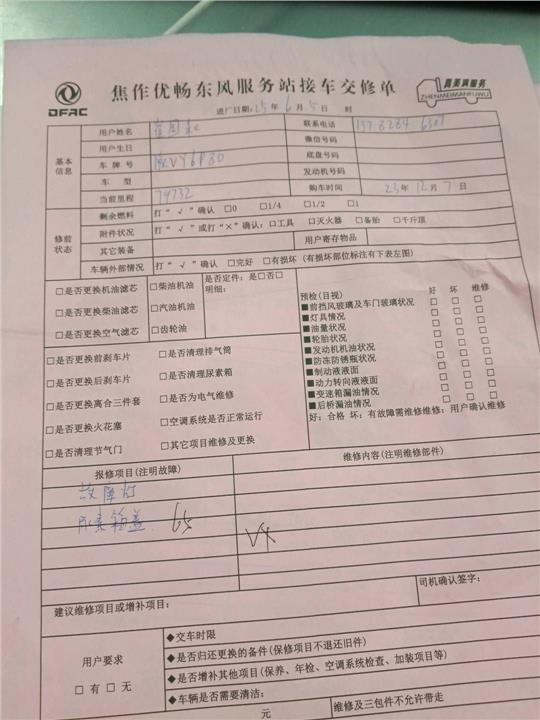 DFAC
焦作优畅东风服务站接车交修单
真美满服务
ZHENMEIMANFUWU
进厂日期:25年6月5日 时
基本信息
用户姓名
联系电话
用户生日
微信号码
车牌号
底盘号码
车型
发动机号码
当前里程 79732
购车时间 23年12月7日
修前状态
剩余燃料 打“√”确认 □0 □1/4 □1/2 □1
附件状况 打“√”或打“×”确认:□工具 □灭火器 □备胎 □千斤顶
其它装备
用户寄存物品
车辆外部情况 打“√”确认 □完好 □有损坏(有损坏部位标注有下表左图)
□是否更换机油滤芯 □柴油机油 是否定件:是□否□
明细:
□是否更换柴油滤芯 □汽油机油
□是否更换空气滤芯 □齿轮油
□是否更换前刹车片 □是否清理排气筒
□是否更换后刹车片 □是否清理尿素箱
□是否更换离合三件套 □是否为电气维修
□是否更换火花塞 □空调系统是否正常运行
□是否清理节气门 □其它项目维修及更换
预检(目视) 好 坏 维修
■前挡风玻璃及车门玻璃状况 □ □ □
■灯具情况 □ □ □
■油量状况 □ □ □
■轮胎状况 □ □ □
■发动机机油状况 □ □ □
■防冻防锈瓶状况 □ □ □
■制动液液面 □ □ □
■动力转向液液面 □ □ □
■变速箱漏油情况 □ □ □
■后桥漏油情况 □ □ □
好:合格 坏:有故障需维修维修:用户确认维修
报修项目(注明故障)
维修内容(注明维修部件)
故障灯
尿素箱盖 65
司机确认签字:
建议维修项目或增补项目:
用户要求
□有 □无
◆交车时限
◆是否归还更换的备件(保修项目不退还旧件)
◆是否增补其他项目(保养、年检、空调系统检查、加装项目等)
◆车辆是否需要清洁:
元
维修及三包件不允许带走